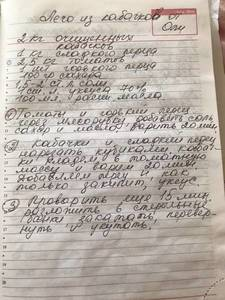 Лечо из кабачков от
Оли
2 кг очищенных
кабачков
1 кг сладкого перца
2,5 кг томатов
горького перца
100 гр сахара
1,5-2 ст. л. соли
уксуса 70%
100 мл. раст. масла
① Томаты и горький перец
через мясорубку, добавить соль
сахар и масло. варить 20 мин
② Кабачки и сладкий перец
нарезать кубиками кабач
ки кладем в томатную
массу и варим 20 мин.
добавляем перец и как
только закипит, уксус
③ Проварить ещё 15 мин
разложить в стерильные
банки закатать, перевер-
нуть и укутать.